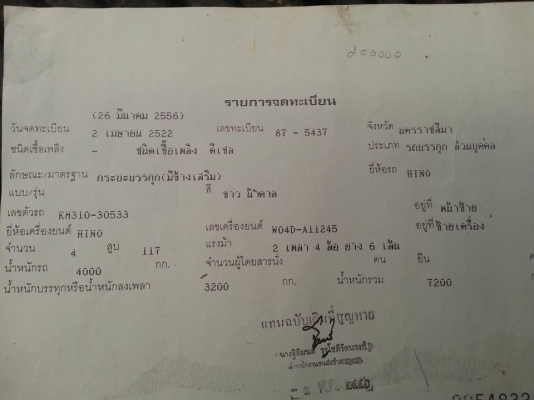 ๙๐๐๐๐๐
รายการจดทะเบียน
(26 มีนาคม 2556)
วันจดทะเบียน 2 เมษายน 2522 เลขทะเบียน 87 - 5437 จังหวัด นครราชสีมา
ชนิดเชื้อเพลิง - ชนิดเชื้อเพลิง ดีเซล ประเภท รถบรรทุก ส่วนบุคคล
ลักษณะ/มาตรฐาน กระบะบรรทุก(มีข้างเสริม) ยี่ห้อรถ HINO
แบบ/รุ่น สี ขาว น้ำตาล
เลขตัวรถ KM310-30533 อยู่ที่ หน้าซ้าย
ยี่ห้อเครื่องยนต์ HINO เลขเครื่องยนต์ W04D-A11245 อยู่ที่ ซ้ายเครื่อง
จำนวน 4 สูบ 117 แรงม้า 2 เพลา 4 ล้อ ยาง 6 เส้น
น้ำหนักรถ 4000 กก. จำนวนผู้โดยสารนั่ง คน ยืน
น้ำหนักบรรทุกหรือน้ำหนักลงเพลา 3200 กก. น้ำหนักรวม 7200
แทนฉบับเดิมที่สูญหาย